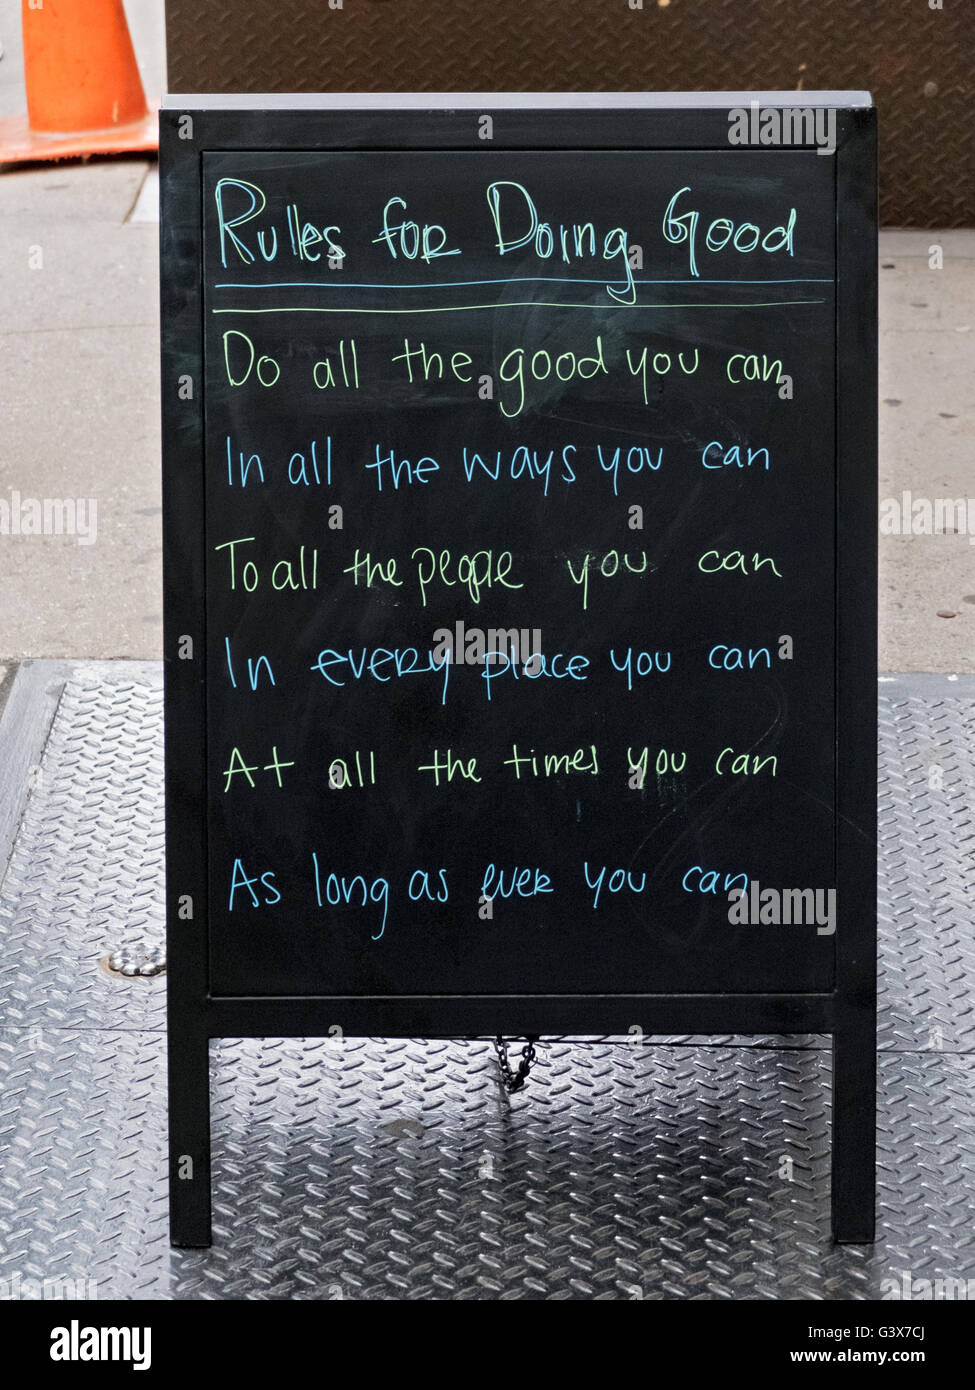 Rules for Doing Good
Do all the good you can
In all the ways you can
To all the people you can
In every place you can
At all the times you can
As long as ever you can
alamy
alamy stock photo
G3X7CJ
www.alamy.com